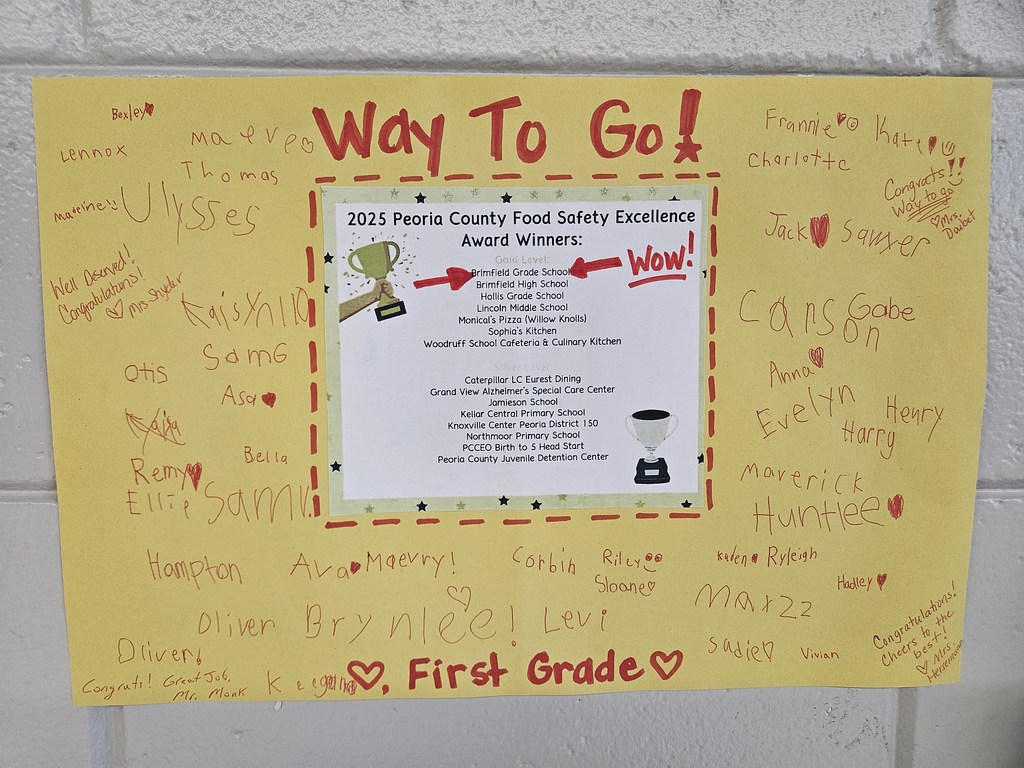 Way To Go!
2025 Peoria County Food Safety Excellence
Award Winners:
Gold Level:
Brimfield Grade School
Wow!
Brimfield High School
Hollis Grade School
Lincoln Middle School
Monical's Pizza (Willow Knolls)
Sophia's Kitchen
Woodruff School Cafeteria & Culinary Kitchen
Silver Level:
Caterpillar LC Eurest Dining
Grand View Alzheimer's Special Care Center
Jamieson School
Kellar Central Primary School
Knoxville Center Peoria District 150
Northmoor Primary School
PCCEO Birth to 5 Head Start
Peoria County Juvenile Detention Center
Bexley
Lennox
Maeve
Thomas
Ulysses
Well Deserved!
Congratulations!
Mrs Snyder
SamG
Otis
Asa
Bella
Remy
Ellie
Frannie
Kate
Charlotte
Congrats!!
Way to go
Mrs.
Daibet
Jack
Sawyer
Carson
Gabe
Anna
Evelyn
Henry
Harry
Maverick
Huntlee
Hampton
Ava
Maevry!
Corbin
Riley
Sloane
Kaden
Ryleigh
Hadley
Oliver
Brynlee!
Levi
Maxzz
Sadie
Vivian
Oliver!
Congrats! Great Job,
Mr. Monk
Keegan
First Grade
Congratulations!
Cheers to the
best!
Mrs.